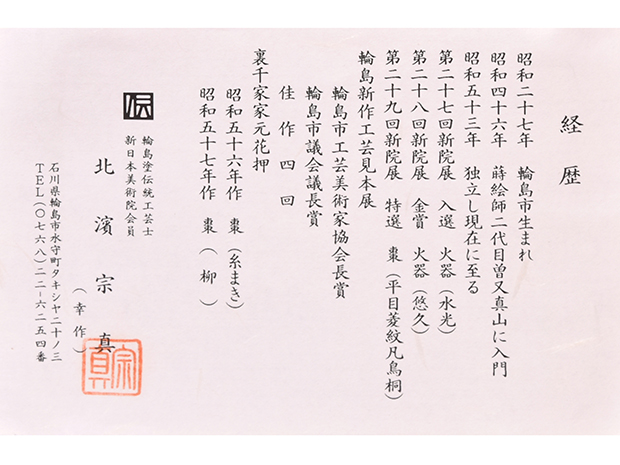 経歴
昭和二十七年 輪島市生まれ
昭和四十六年 蒔絵師二代目曽又真山に入門
昭和五十三年 独立し現在に至る
第二十七回新院展 入選 火器(水光)
第二十八回新院展 金賞 火器(悠久)
第二十九回新院展 特選 棗(平目菱紋凡鳥桐)
輪島新作工芸見本展
輪島市工芸美術家協会長賞
輪島市議会議長賞
佳作四回
裏千家家元花押
昭和五十六年作 棗(糸まき)
昭和五十七年作 棗(柳)
輪島塗伝統工芸士
新日本美術院会員
北濱宗真
(幸作)
石川県輪島市水守町タキシヤ二十ノ三
TEL(〇七六八)二二-六二五四番
宗真